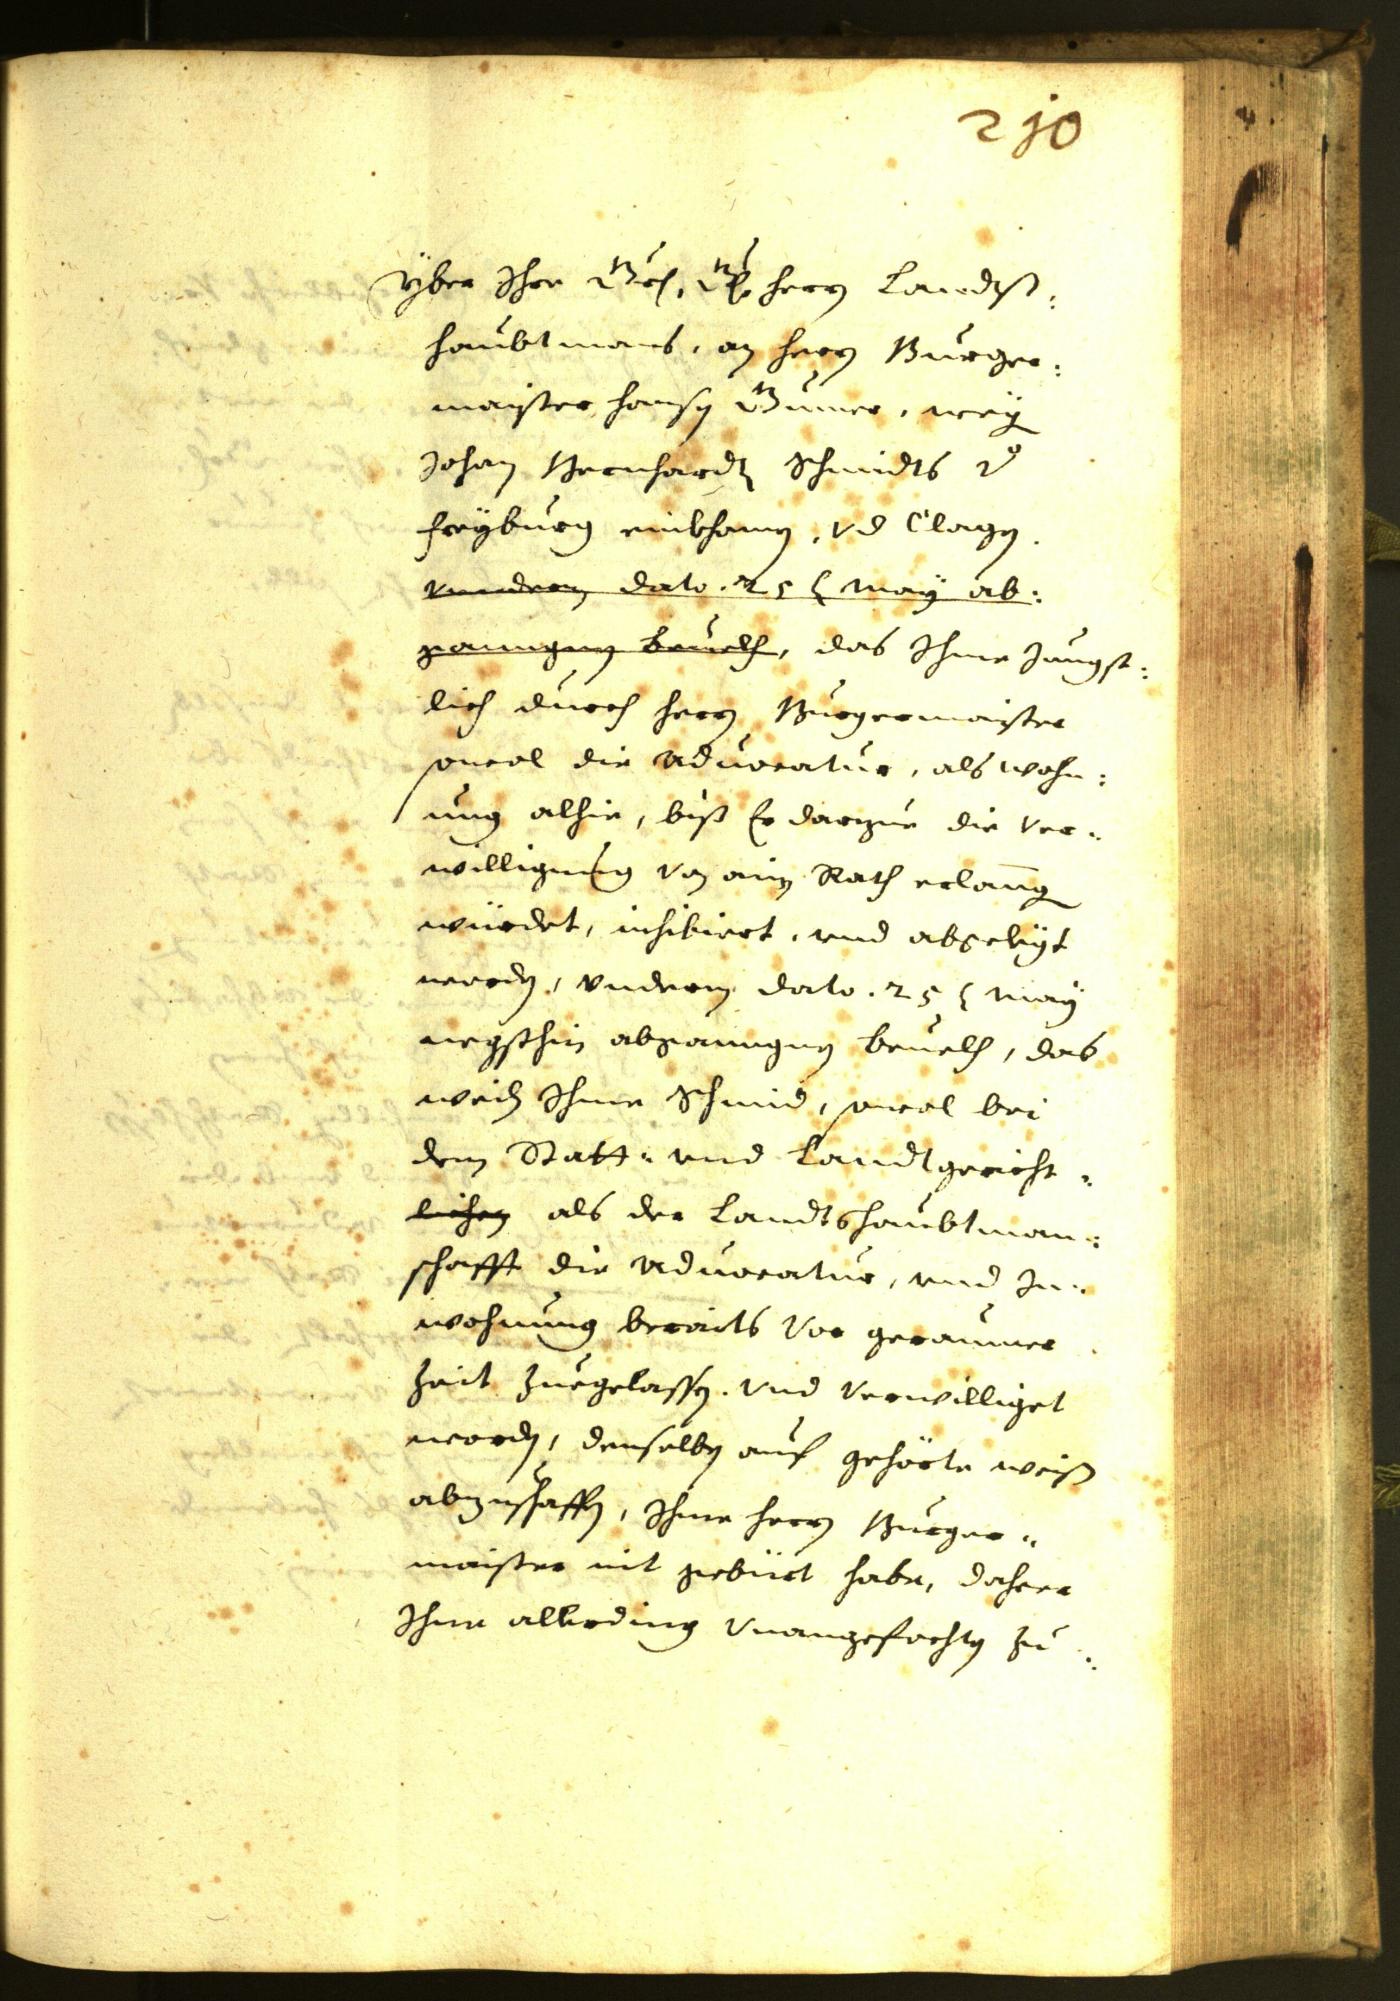 210
Yber Ihr Herrn Landts:
haubtmans, an Herrn Burger:
maister Hansen wey
Johan Bernhardt Schmidts D
Freyburg einkhomen, vnd Clagen
vnnderm dato. 25 May ab:
ganngnen beuelch, das Ihme Jungst:
lich durch Herrn Burgermaister
sowol die Aduocatur, als wohn:
ung alhie, biß Er darzue die ver:
willigung von ainem Rath erlanng
würdet, inhibiert, vnd abgelegt
worden, vnderm dato. 25 May
negsthin abganngnen beuelch, das
weiln Ihme Schmid, sowol bei
dem Statt: vnd Landtgericht:
lichen als der Landtshaubtman:
schafft die Aduocatur, vnd In:
wohnung beraits vor geraumer
Zeit zuegelassen. vnd verwilliget
worden, denselben auf gehörte weiß
abzuschaffen, Ihme Herrn Burger:
maister nit gebürt habe, dahero
Ihne allerding vnangefochten zu: